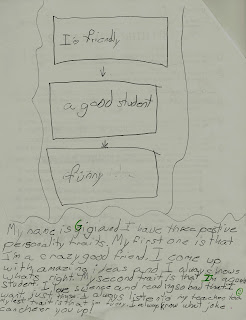 I'm friendly
a good student
funny
My name is Gigi and I have three postive
personality traits. My first one is that
I'm a crazy good friend. I come up
with amazing ideas and I always knows
what's right. My second trait is that I'm a good
student. I love science and reading so now that I
want just I always listen to my teachers
My last trait is that I always know what joke
can cheer you up!